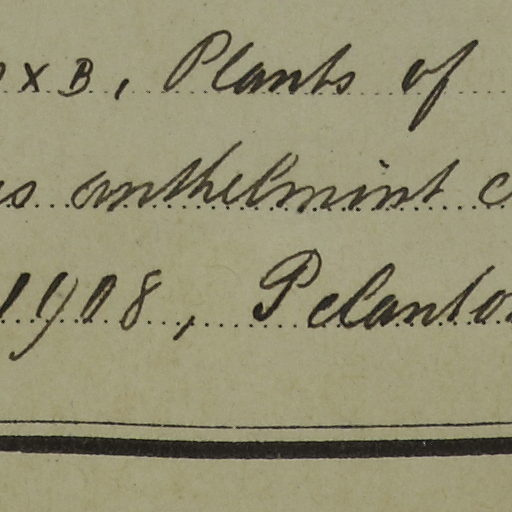 oxB, Plants of
as anthelmint c
1908, Pelanton